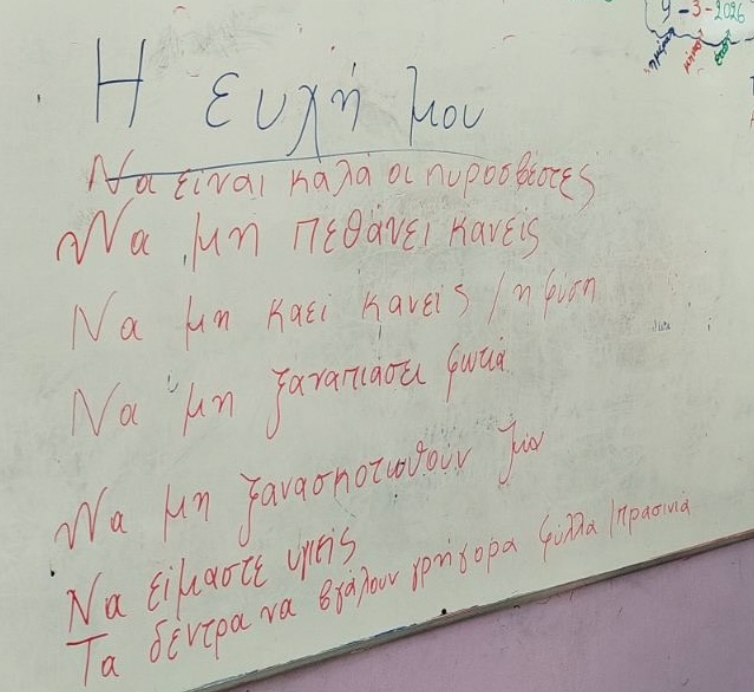 9-3-2026
ημέρα μήνας έτος
Η ευχή μου
Να είναι καλά οι πυροσβέστες
Να μη πεθάνει κανείς
Να μη καεί κανείς / η φύση
Να μη ξαναπιάσει φωτιά
Να μη ξανασκοτωθούν ζώα
Να είμαστε υγιείς
Τα δέντρα να βγάλουν γρήγορα φύλλα / πρασινιά